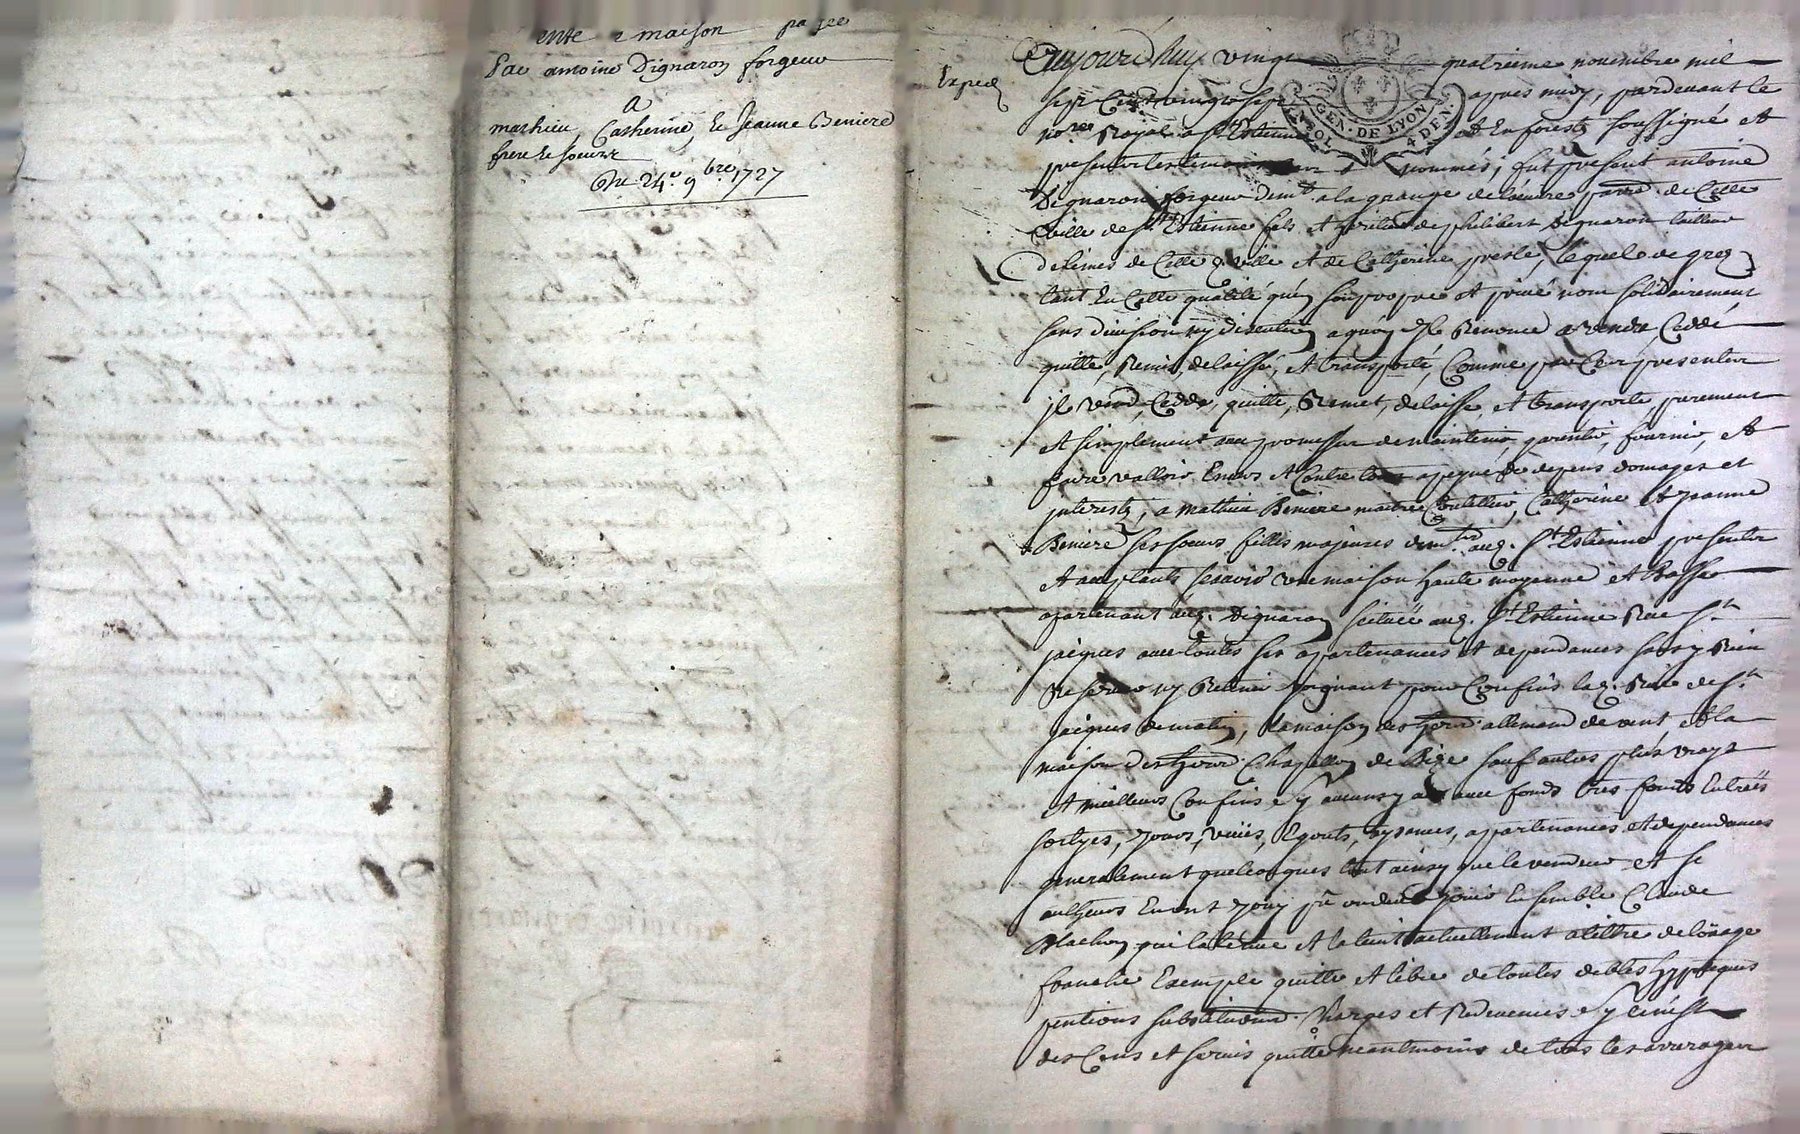 ente maison passee
Par antoine Dignaron forgeur
A
mathieu, Catherine, Et Jeanne Beniere
frere Et soeurs
Du 24e 9bre 1727
Exped
Aujourd'huy vingt quatrieme novembre mil
sept Cent vingt sept apres midy, pardevant le
nore Royal a St Estienne en forestz soussigné et
presents les temoins nommés, fut present antoine
Dignaron forgeur demt a la grange de loeuvre parre de Cette
Ville de St Estienne fils et heritier de philibert Dignaron tailleur
de limes de Cette ville et de Catherine presle, lequel de gré
tant En Cette qualité qu'en son propre et privé nom solidairement
sans division ny discution a quoy Il Renonce a vendu Ceddé
quitté, Remis, delaissé, et transporté, Comme par Ces presentes
jl vend, Cedde, quitte, Remet, delaisse, et transporte, purement
et simplement avec promesse de maintenir, garentir, fournir, et
faire valloir Envers et Contre tous a peyne de depens domages et
jnterests, a mathieu Beniere maitre Coutellier, Catherine et Jeanne
Beniere ses soeurs filles majeures demts aud. St Estienne presents
et acceptants scavoir une maison haute moyenne et Basse
apartenant aud. Dignaron scituée aud. St Estienne Rue St
jacques avec toutes ses apartenances et dependances sans y Rien
Reserver ny Retenir joignant pour Confins lad. Rue de St
jacques de matin, la maison des hoirs allemand de vent, et la
maison des hoirs Chapellon de Bize sauf autres plus vrays
et meilleurs Confins sy aucuns y a avec fonds tres fonds Entrées
sortyes, jours, vuës, Egouts, aysances, appartenances et dependances
generalement quelconques tout ainsy que le vendeur et se
autheurs En ont jouy pû ou deub jouir Ensemble Claude
Blachon qui la tenue et la tient actuellement a tiltre de loüage
franche Exempte quitte et libre de toutes debtes hypoteques
pentions substitutions Charges et Redevances sy Ce n'est
des Cens et servis quitte neantmoins de tous les arrerages
GEN. DE LYON
4 DEN.